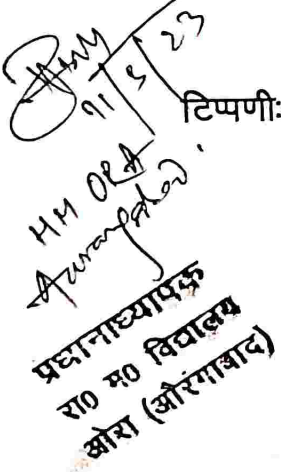 11/5/23
टिप्पणीः
HM ORA
Aurangabad.
प्रधानाध्यापक
रा० म० विद्यालय
ओरा (औरंगाबाद)